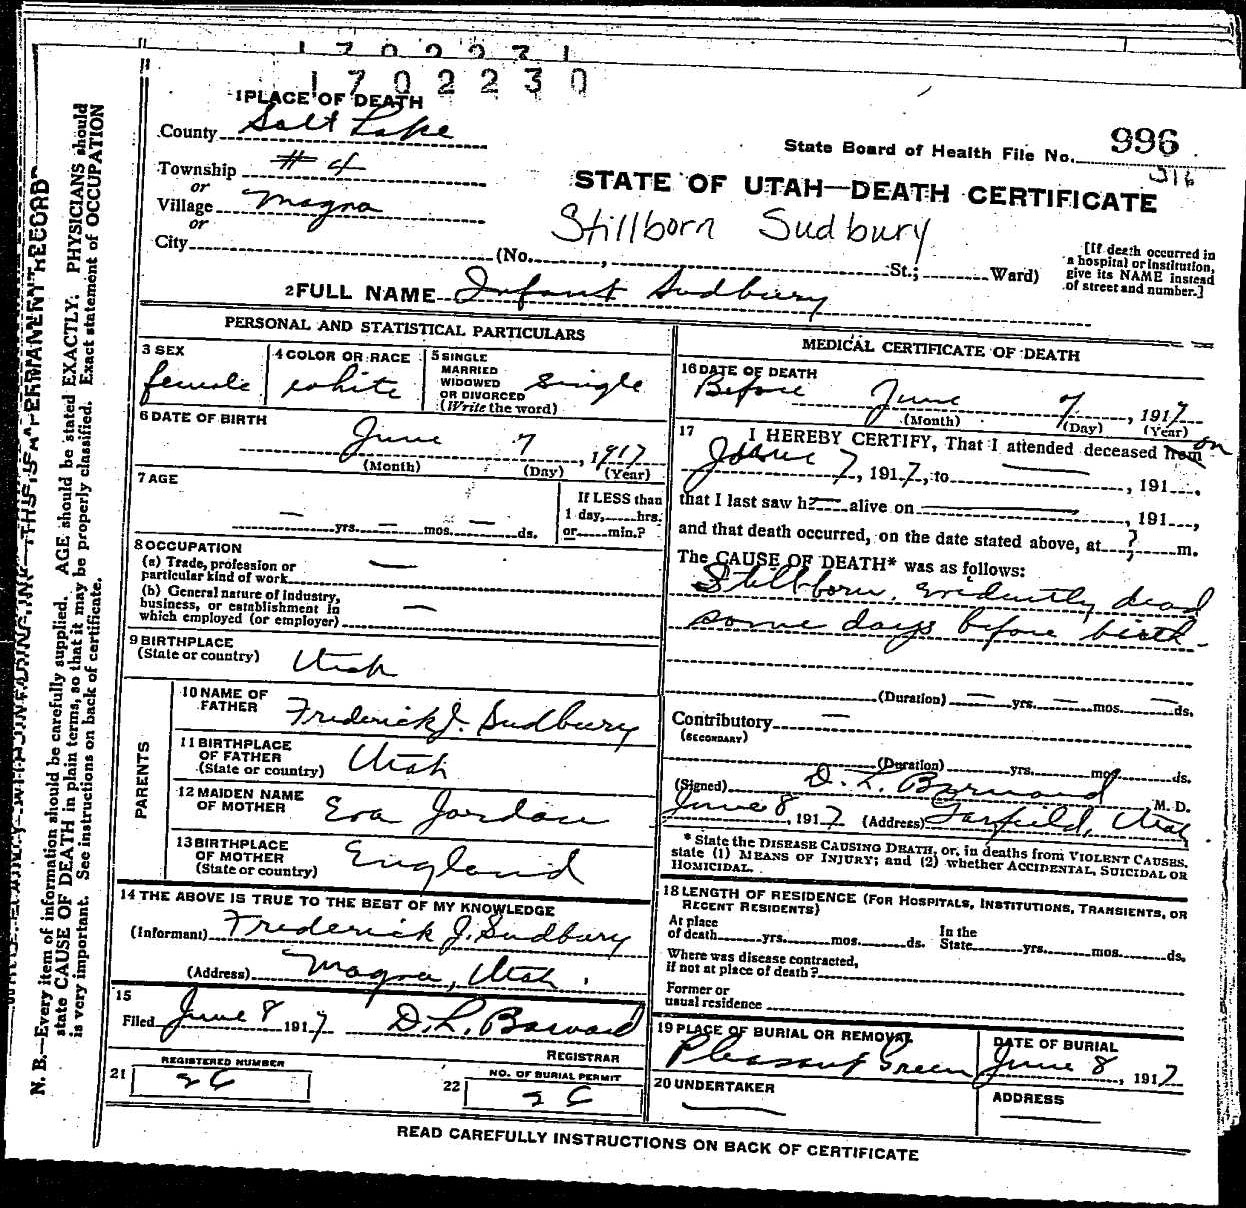 1702231
1702230
1 PLACE OF DEATH
County Salt Lake
State Board of Health File No. 996
316
Township # 4
or
Village Magna
or
City (No. , St.; Ward)
STATE OF UTAH—DEATH CERTIFICATE
Stillborn Sudbury
[If death occurred in
a hospital or institution,
give its NAME instead
of street and number.]
2 FULL NAME Infant Sudbury
PERSONAL AND STATISTICAL PARTICULARS
3 SEX
female
4 COLOR OR RACE
white
5 SINGLE
MARRIED
WIDOWED
OR DIVORCED
(Write the word)
single
6 DATE OF BIRTH
June 7, 1917
(Month) (Day) (Year)
7 AGE
— yrs. — mos. — ds.
If LESS than
1 day, hrs.
or min.?
8 OCCUPATION
(a) Trade, profession or
particular kind of work —
(b) General nature of industry,
business, or establishment in
which employed (or employer) —
9 BIRTHPLACE
(State or country) Utah
PARENTS
10 NAME OF
FATHER Frederick J. Sudbury
11 BIRTHPLACE
OF FATHER
(State or country) Utah
12 MAIDEN NAME
OF MOTHER Eva Jordan
13 BIRTHPLACE
OF MOTHER
(State or country) England
14 THE ABOVE IS TRUE TO THE BEST OF MY KNOWLEDGE
(Informant) Frederick J. Sudbury
(Address) Magna, Utah.
15
Filed June 8 1917 D. L. Barnard
REGISTRAR
REGISTERED NUMBER
21 26
NO. OF BURIAL PERMIT
22 26
MEDICAL CERTIFICATE OF DEATH
16 DATE OF DEATH
Before June 7, 1917
(Month) (Day) (Year)
17 I HEREBY CERTIFY, That I attended deceased from on
June 7, 1917, to —, 191 ,
that I last saw h— alive on —, 191 ,
and that death occurred, on the date stated above, at ? m.
The CAUSE OF DEATH* was as follows:
Stillborn, evidently dead
some days before birth
(Duration) — yrs. — mos. — ds.
Contributory —
(SECONDARY)
(Duration) yrs. mos. ds.
(Signed) D. L. Barnard M. D.
June 8, 1917 (Address) Garfield, Utah
* State the DISEASE CAUSING DEATH, or, in deaths from VIOLENT CAUSES,
state (1) MEANS OF INJURY; and (2) whether ACCIDENTAL, SUICIDAL OR
HOMICIDAL.
18 LENGTH OF RESIDENCE (FOR HOSPITALS, INSTITUTIONS, TRANSIENTS, OR
RECENT RESIDENTS)
At place
of death yrs. mos. ds.
In the
State yrs. mos. ds.
Where was disease contracted,
if not at place of death?
Former or
usual residence
19 PLACE OF BURIAL OR REMOVAL
Pleasant Green
DATE OF BURIAL
June 8, 1917
20 UNDERTAKER
—
ADDRESS
—
READ CAREFULLY INSTRUCTIONS ON BACK OF CERTIFICATE
WRITE PLAINLY WITH UNFADING INK—THIS IS A PERMANENT RECORD
N. B.—Every item of information should be carefully supplied. AGE should be stated EXACTLY. PHYSICIANS should
state CAUSE OF DEATH in plain terms, so that it may be properly classified. Exact statement of OCCUPATION
is very important. See instructions on back of certificate.